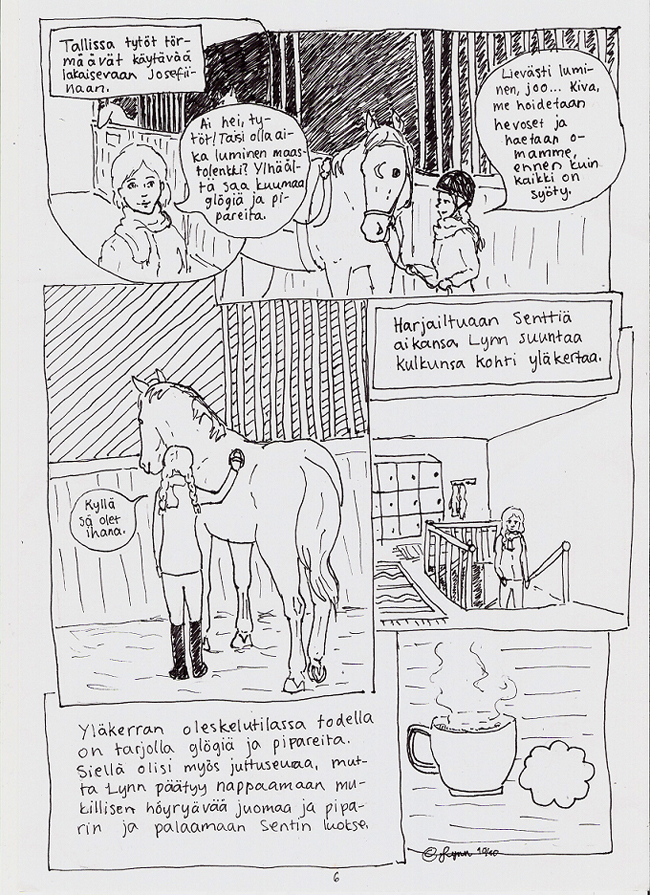 Tallissa tytöt tör-
määvät käytävää
lakaisevaan Josefii-
naan.
Ai hei, ty-
töt! Taisi olla ai-
ka luminen maas-
tolenkki? Ylhääl-
tä saa kuumaa
glögiä ja pi-
pareita.
Lievästi lumi-
nen, joo... Kiva,
me hoidetaan
hevoset ja
haetaan o-
mamme,
ennen kuin
kaikki on
syöty.
Kyllä
sä olet
ihana.
Harjailtuaan Senttiä
aikansa Lynn suuntaa
kulkunsa kohti yläkertaa.
Yläkerran oleskelutilassa todella
on tarjolla glögiä ja pipareita.
Siellä olisi myös juttuseuraa, mut-
ta Lynn päätyy nappaamaan mu-
killisen höyryävää juomaa ja pipa-
rin ja palaamaan Sentin luokse.
© Lynn
6